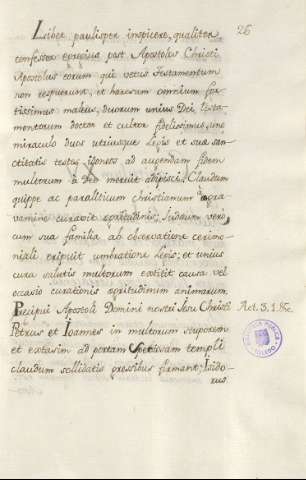 26
Libet paulisper inspicere, qualiter
confessor egregius post Apostolos Christi
Apostolus eorum qui vetus testamentum
non respuerunt, et haeresum omnium for-
tissimus maleus, duorum unius Dei testa-
mentorum doctor et cultor fidelissimus, uno
miraculo duos utriusque Legis et sua san-
ctitatis testes idoneos ad augendam fidem
multorum a Deo meruit adipisci. Claudum
quippe ac paraliticum christianum a gra-
vamine curavit egritudinis; Iudaeum vero
cum sua familia ab observatione cerimo-
niali eripuit umbratione Legis; et unius
cura salutis multorum extitit causa vel
occasio curationis egritudinum animarum.
Precipui Apostoli Domini nostri Iesu Christi Act. 3, 1. &c.
Petrus et Ioannes in multorum stuporem
et extasim ad portam Speciosam templi
claudum sollidatis gressibus firmant; Isido-
rus
BIBLIOTECA PUBLICA TOLEDO